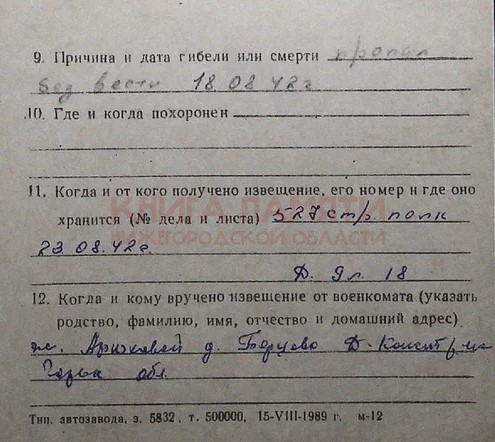 9. Причина и дата гибели или смерти пропал
без вести 18.08.42г
10. Где и когда похоронен
11. Когда и от кого получено извещение, его номер и где оно
хранится (№ дела и листа) 527 стр. полк
КНИГА ПАМЯТИ
НИЖЕГОРОДСКОЙ ОБЛАСТИ
23.08.42г.
Д. 9 л. 18
12. Когда и кому вручено извещение от военкомата (указать
родство, фамилию, имя, отчество и домашний адрес)
ж. д. Борцово Д-Конст р-н
Горьк обл.
Тип. автозавода, з. 5832, т. 500000, 15-VIII-1989 г. м-12